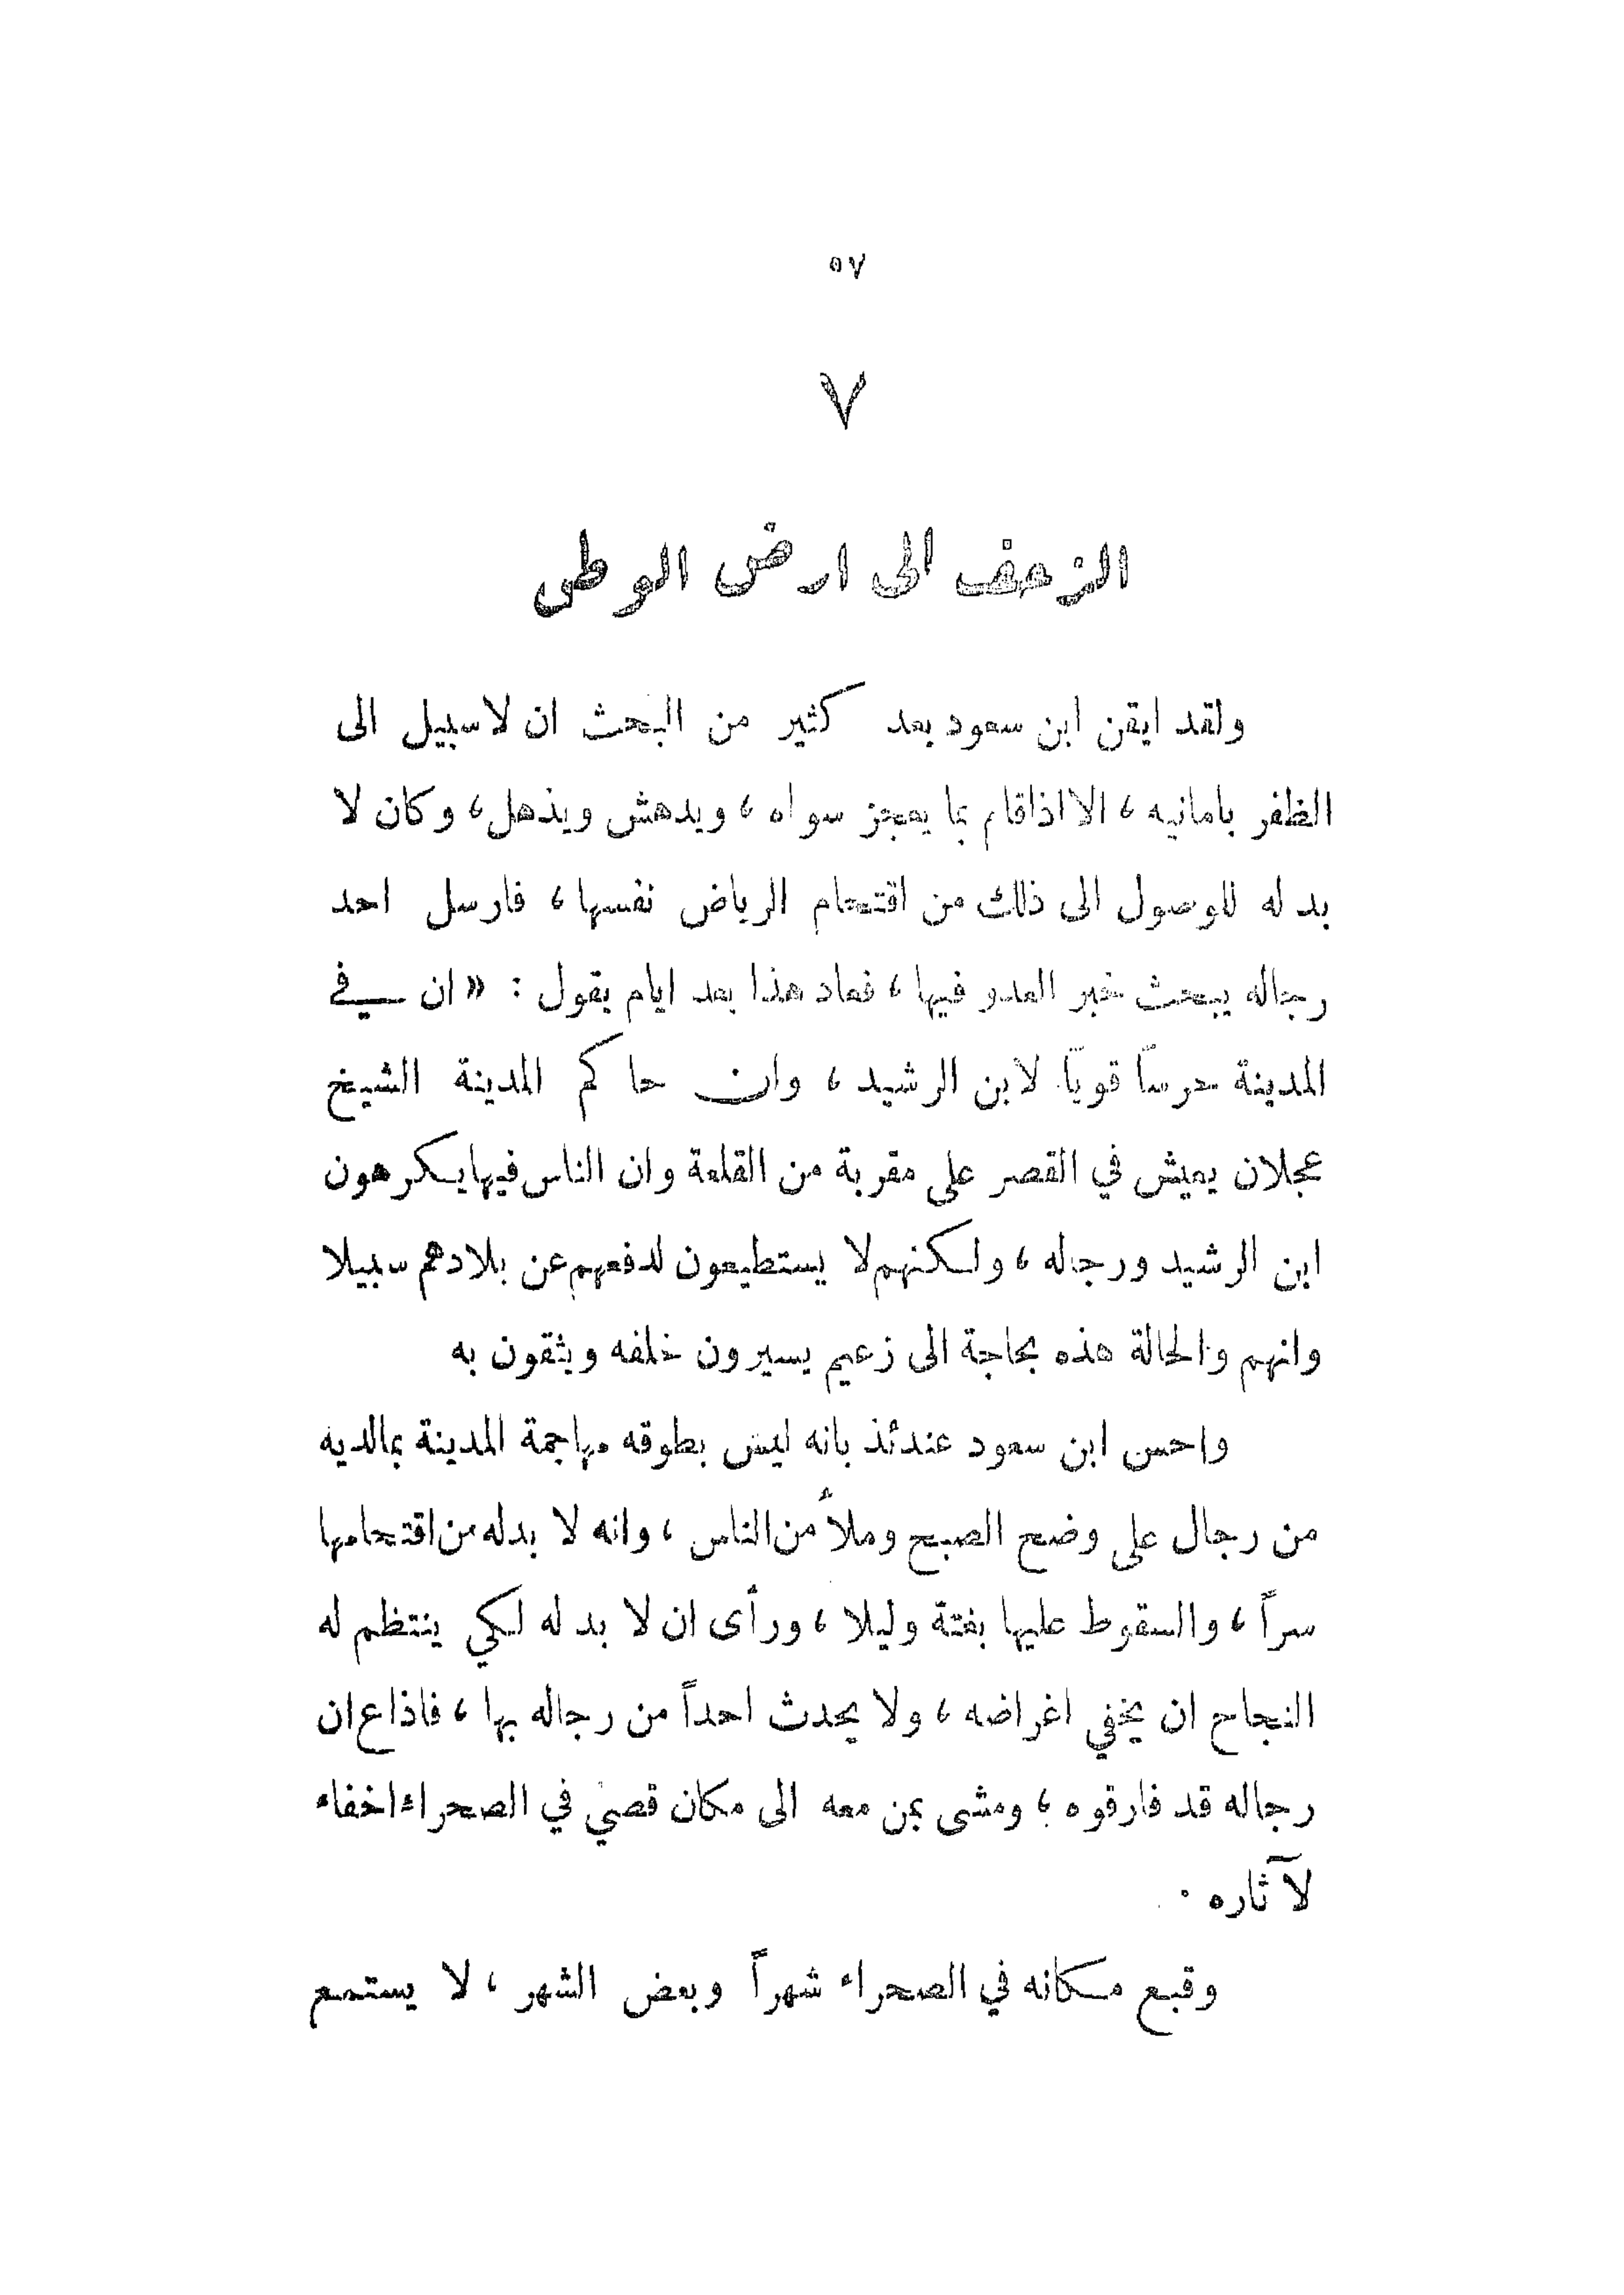 ٥٧
٧
الزحف الى ارض الوطن
ولقد ايقن ابن سعود بعد كثير من البحث ان لا سبيل الى
الظفر بامانيه ، الا اذا قام بما يعجز سواه ، ويدهش ويذهل ، وكان لا
بد له للوصول الى ذلك من اقتحام الرياض نفسها ، فارسل احد
رجاله يبحث خبر العدو فيها ، فعاد هذا بعد ايام يقول : « ان في
المدينة حرساً قوياً لابن الرشيد ، وان حاكم المدينة الشيخ
عجلان يعيش في القصر على مقربة من القلعة وان الناس فيها يكرهون
ابن الرشيد ورجاله ، ولكنهم لا يستطيعون لدفعهم عن بلادهم سبيلا
وانهم والحالة هذه بحاجة الى زعيم يسيرون خلفه ويثقون به
واحس ابن سعود عندئذ بانه ليس بطوقه مهاجمة المدينة بما لديه
من رجال على وضح الصبح وملأ من الناس ، وانه لا بد له من اقتحامها
سراً ، والسقوط عليها بغتة وليلا ، ورأى ان لا بد له لكي ينتظم له
النجاح ان يخفي اغراضه ، ولا يحدث احداً من رجاله بها ، فاذاع ان
رجاله قد فارقوه ، ومشى بمن معه الى مكان قصي في الصحراء اخفاء
لآثاره .
وقبع مكانه في الصحراء شهراً وبعض الشهر ، لا يستمع